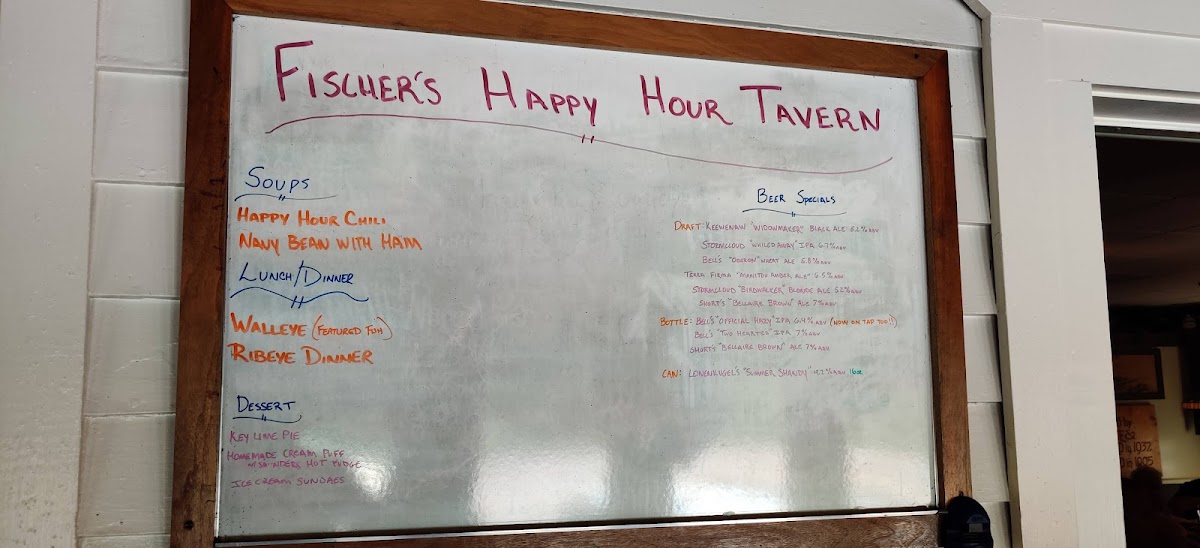 FISCHER'S HAPPY HOUR TAVERN
SOUPS
HAPPY HOUR CHILI
NAVY BEAN WITH HAM
LUNCH/DINNER
WALLEYE (FEATURED FISH)
RIBEYE DINNER
DESSERT
KEY LIME PIE
HOMEMADE CREAM PUFF
W/ SAUNDERS HOT FUDGE
ICE CREAM SUNDAES
BEER SPECIALS
DRAFT: KEEWENAW "WIDOWMAKER" BLACK ALE 5.2% ABV
STORMCLOUD "WHILED AWAY" IPA 6.7% ABV
BELL'S "OBERON" WHEAT ALE 5.8% ABV
TERRA FIRMA "MANITOU AMBER ALE" 5.5% ABV
STORMCLOUD "BIRDWALKER" BLONDE ALE 5.2% ABV
SHORT'S "BELLAIRE BROWN" ALE 7% ABV
BOTTLE: BELL'S "OFFICIAL HAZY" IPA 6.4% ABV (NOW ON TAP TOO!!)
BELL'S "TWO HEARTED" IPA 7% ABV
SHORT'S "BELLAIRE BROWN" ALE 7% ABV
CAN: LEINENKUGEL'S "SUMMER SHANDY" 4.2% ABV 16oz
1932
1905